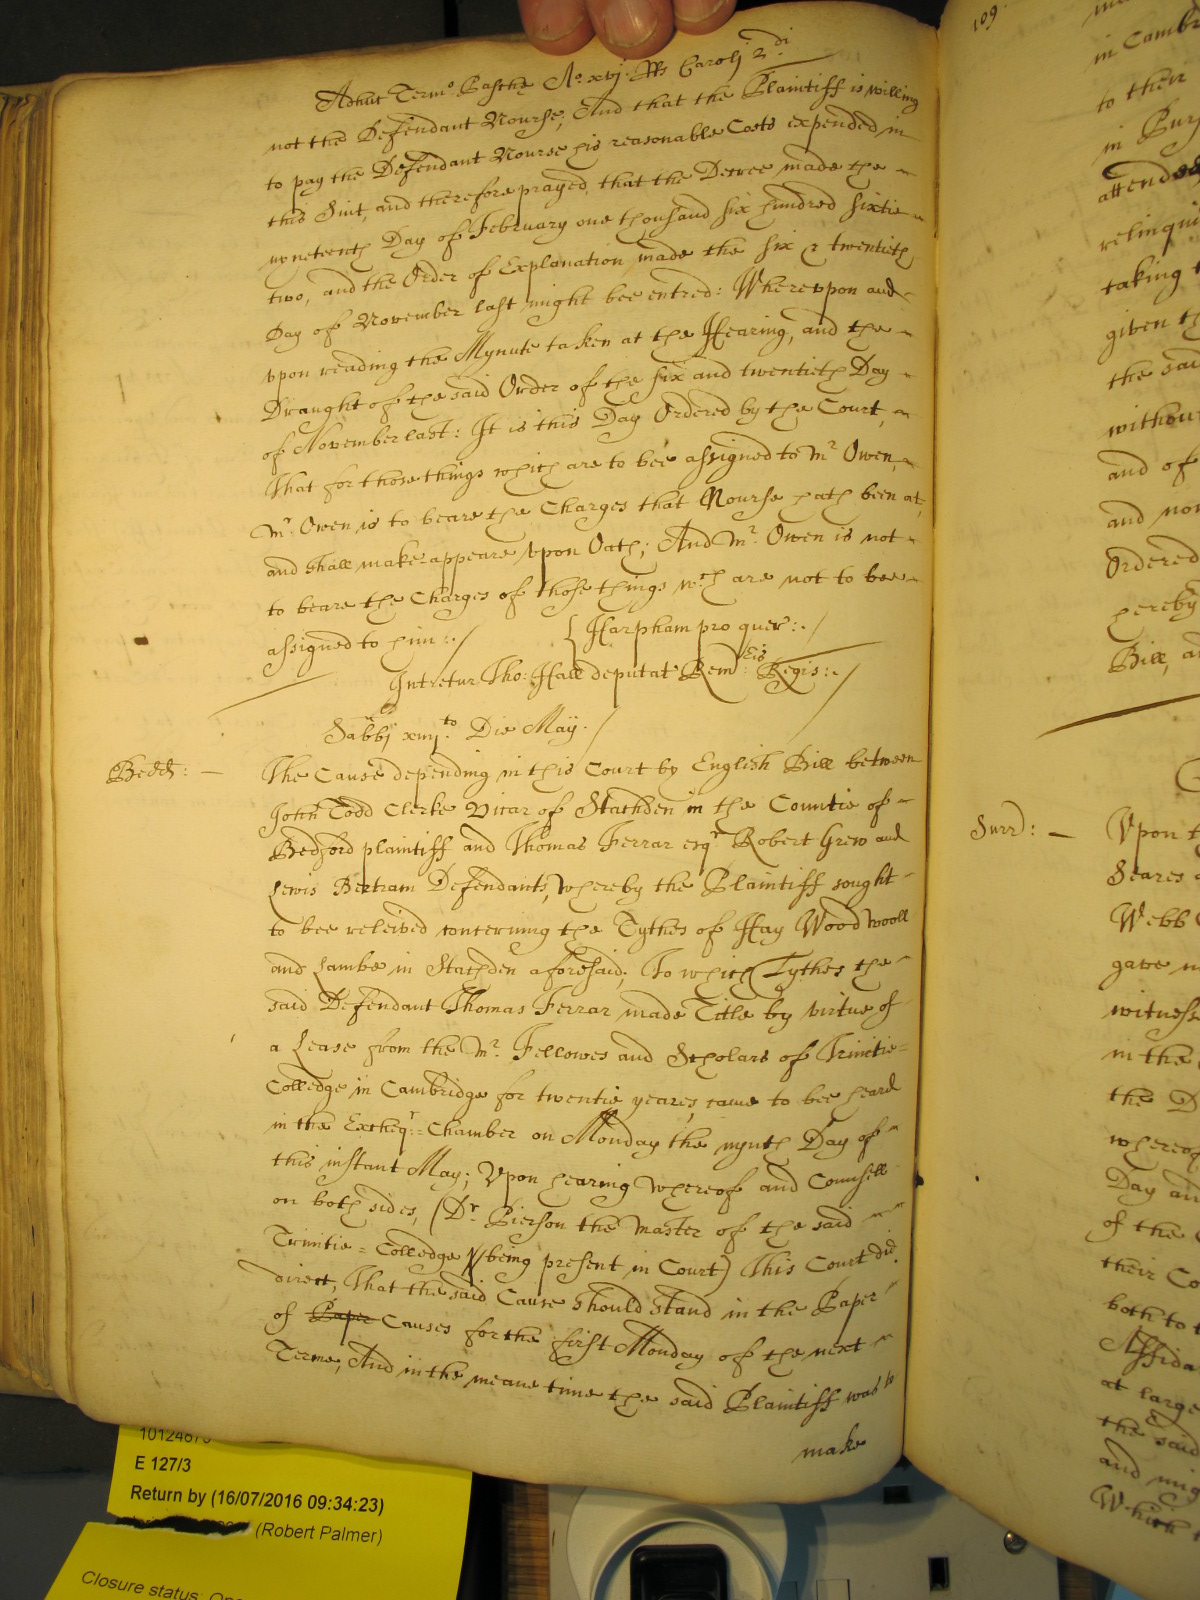 Adhuc Termo Pasche Ao xvj: Rs Caroli 2di
not the Defendant Nourse; And that the Plaintiff is willing
to pay the Defendant Nourse his reasonable Costs expended in
this Suit, and therefore prayed, that the Decree made the
nyneteenth Day of February one thousand six hundred sixtie
two, and the Order of Explanation made the six & twentieth
Day of November last might bee entred: Wherevpon and
vpon reading the Mynute taken at the Hearing, and the
Draught of the said Order of the six and twentieth Day
of November last: It is this Day Ordered by the Court,
That for those things which are to bee assigned to Mr Owen,
Mr. Owen is to beare the Charges that Nourse hath been at,
and shall make appeare vpon Oath; And Mr. Owen is not
to beare the Charges of those things wch are not to bee
assigned to him:./ { Harpham pro quer:./
Intretur Tho: Hall deputat Rem: Eis Regis:./
Sabbi xiiijto. Die May./
Bedd: — The Cause depending in this Court by English Bill between
John Todd Clerke Vicar of Stachden in the Countie of
Bedford plaintiff, and Thomas Ferrar esqr. Robert Grew and
Lewis Bertram Defendants, whereby the Plaintiff sought
to bee releived concerning the Tythes of Hay Wood wooll
and Lambe in Stachden aforesaid; To which Tythes the
said Defendant Thomas Ferrar made Title by virtue of
a Lease from the Mr. Fellowes and Scholars of Trinitie=
Colledge in Cambridge for twentie yeares, came to bee heard
in the Excheqr:=Chamber on Monday the nynth Day of
this instant May; Vpon hearing whereof and Counsell
on both sides, (Dr. Pierson the Master of the said
Trinitie=Colledge being present in Court) This Court did
direct, That the said Cause should stand in the Paper
of Paper Causes for the first Monday of the next
Terme, And in the meane time the said Plaintiff was to
make
109
in Cambr
to their
in Bur
attended
relinqui
taking t
given th
the sai
without
and of
and non
Ordered
hereby
Bill, a
Surr: — Vpon t
Seares
Webb
gave
witness
in the
the D
whereof
Day an
of the
their Co
both to t
Affida
at large
the said
and mig
Which
E 127/3
Return by (16/07/2016 09:34:23)
(Robert Palmer)
Closure status: Ope